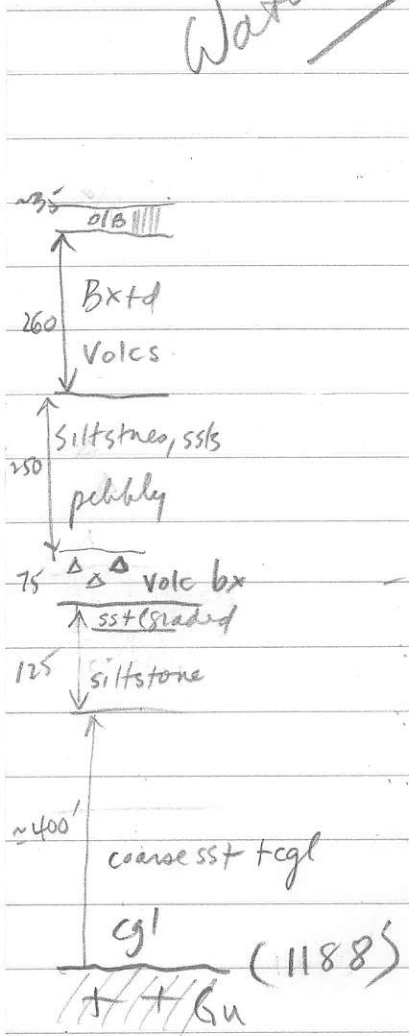 ~35
O/B
Bxtd
260
Volcs
Siltstnes, ssts
250
pebbly
75 Volc bx
sst (graded
125 siltstone
~400'
coarse sst + cgl
cgl
(1188')
+ + Gn